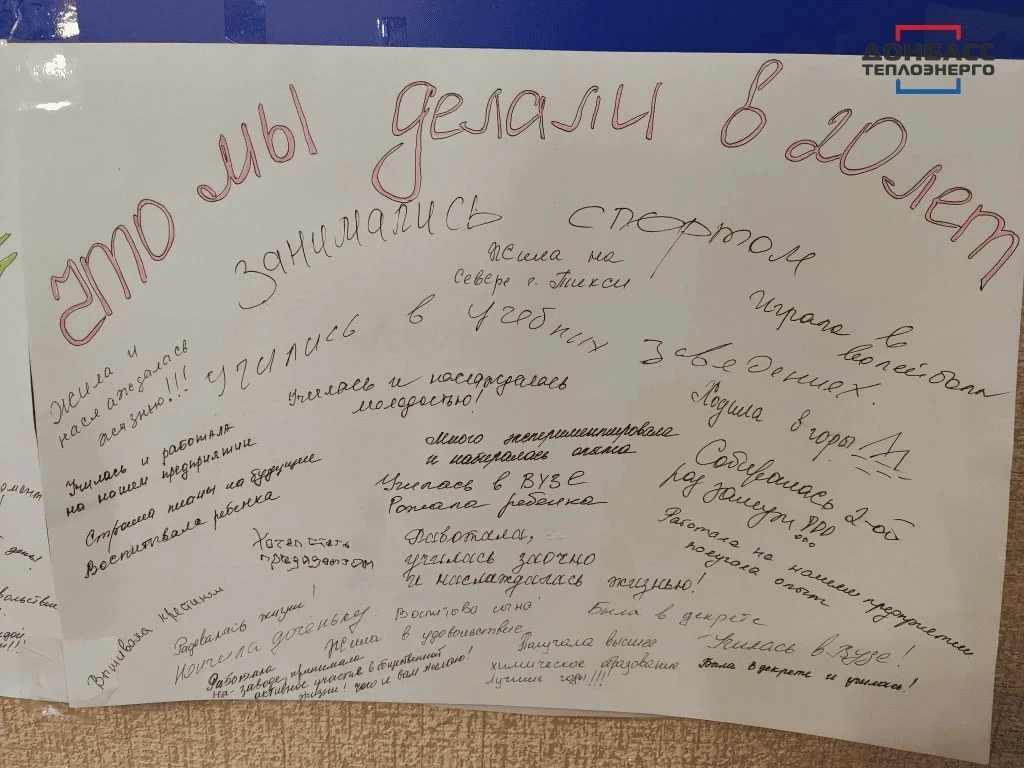 ДОНБАСС
ТЕПЛОЭНЕРГО
Что мы делали в 20 лет
занимались спортом
Жила на
Севере г. Тикси
играла в
волейбол
Жила и
наслаждалась
жизнью!!!
учились в учебных заведениях.
Училась и наслаждалась
молодостью!
Ходила в горы
Училась и работала
на нашем предприятии
Много экспериментировала
и набиралась опыта
Собиралась 2-ой
раз замуж
Строила планы на будущее
Воспитывала ребенка
Училась в ВУЗЕ
Рожала ребенка
Работала на нашем предприятии
получала опыт
Хотел стать
президентом
Работала,
училась заочно
и наслаждалась жизнью!
Вышивала крестиком
Радовалась жизни!
Нянчила доченьку.
Воспитова сына
Была в декрете
Училась в Вузе!
Жила в удовольствие
Работала
на заводе, принимала
активное участие в общественной
жизни! Чего и вам желаю!
Получала высшее
химическое образование
Лучшие годы!!!
Была в декрете и училась!